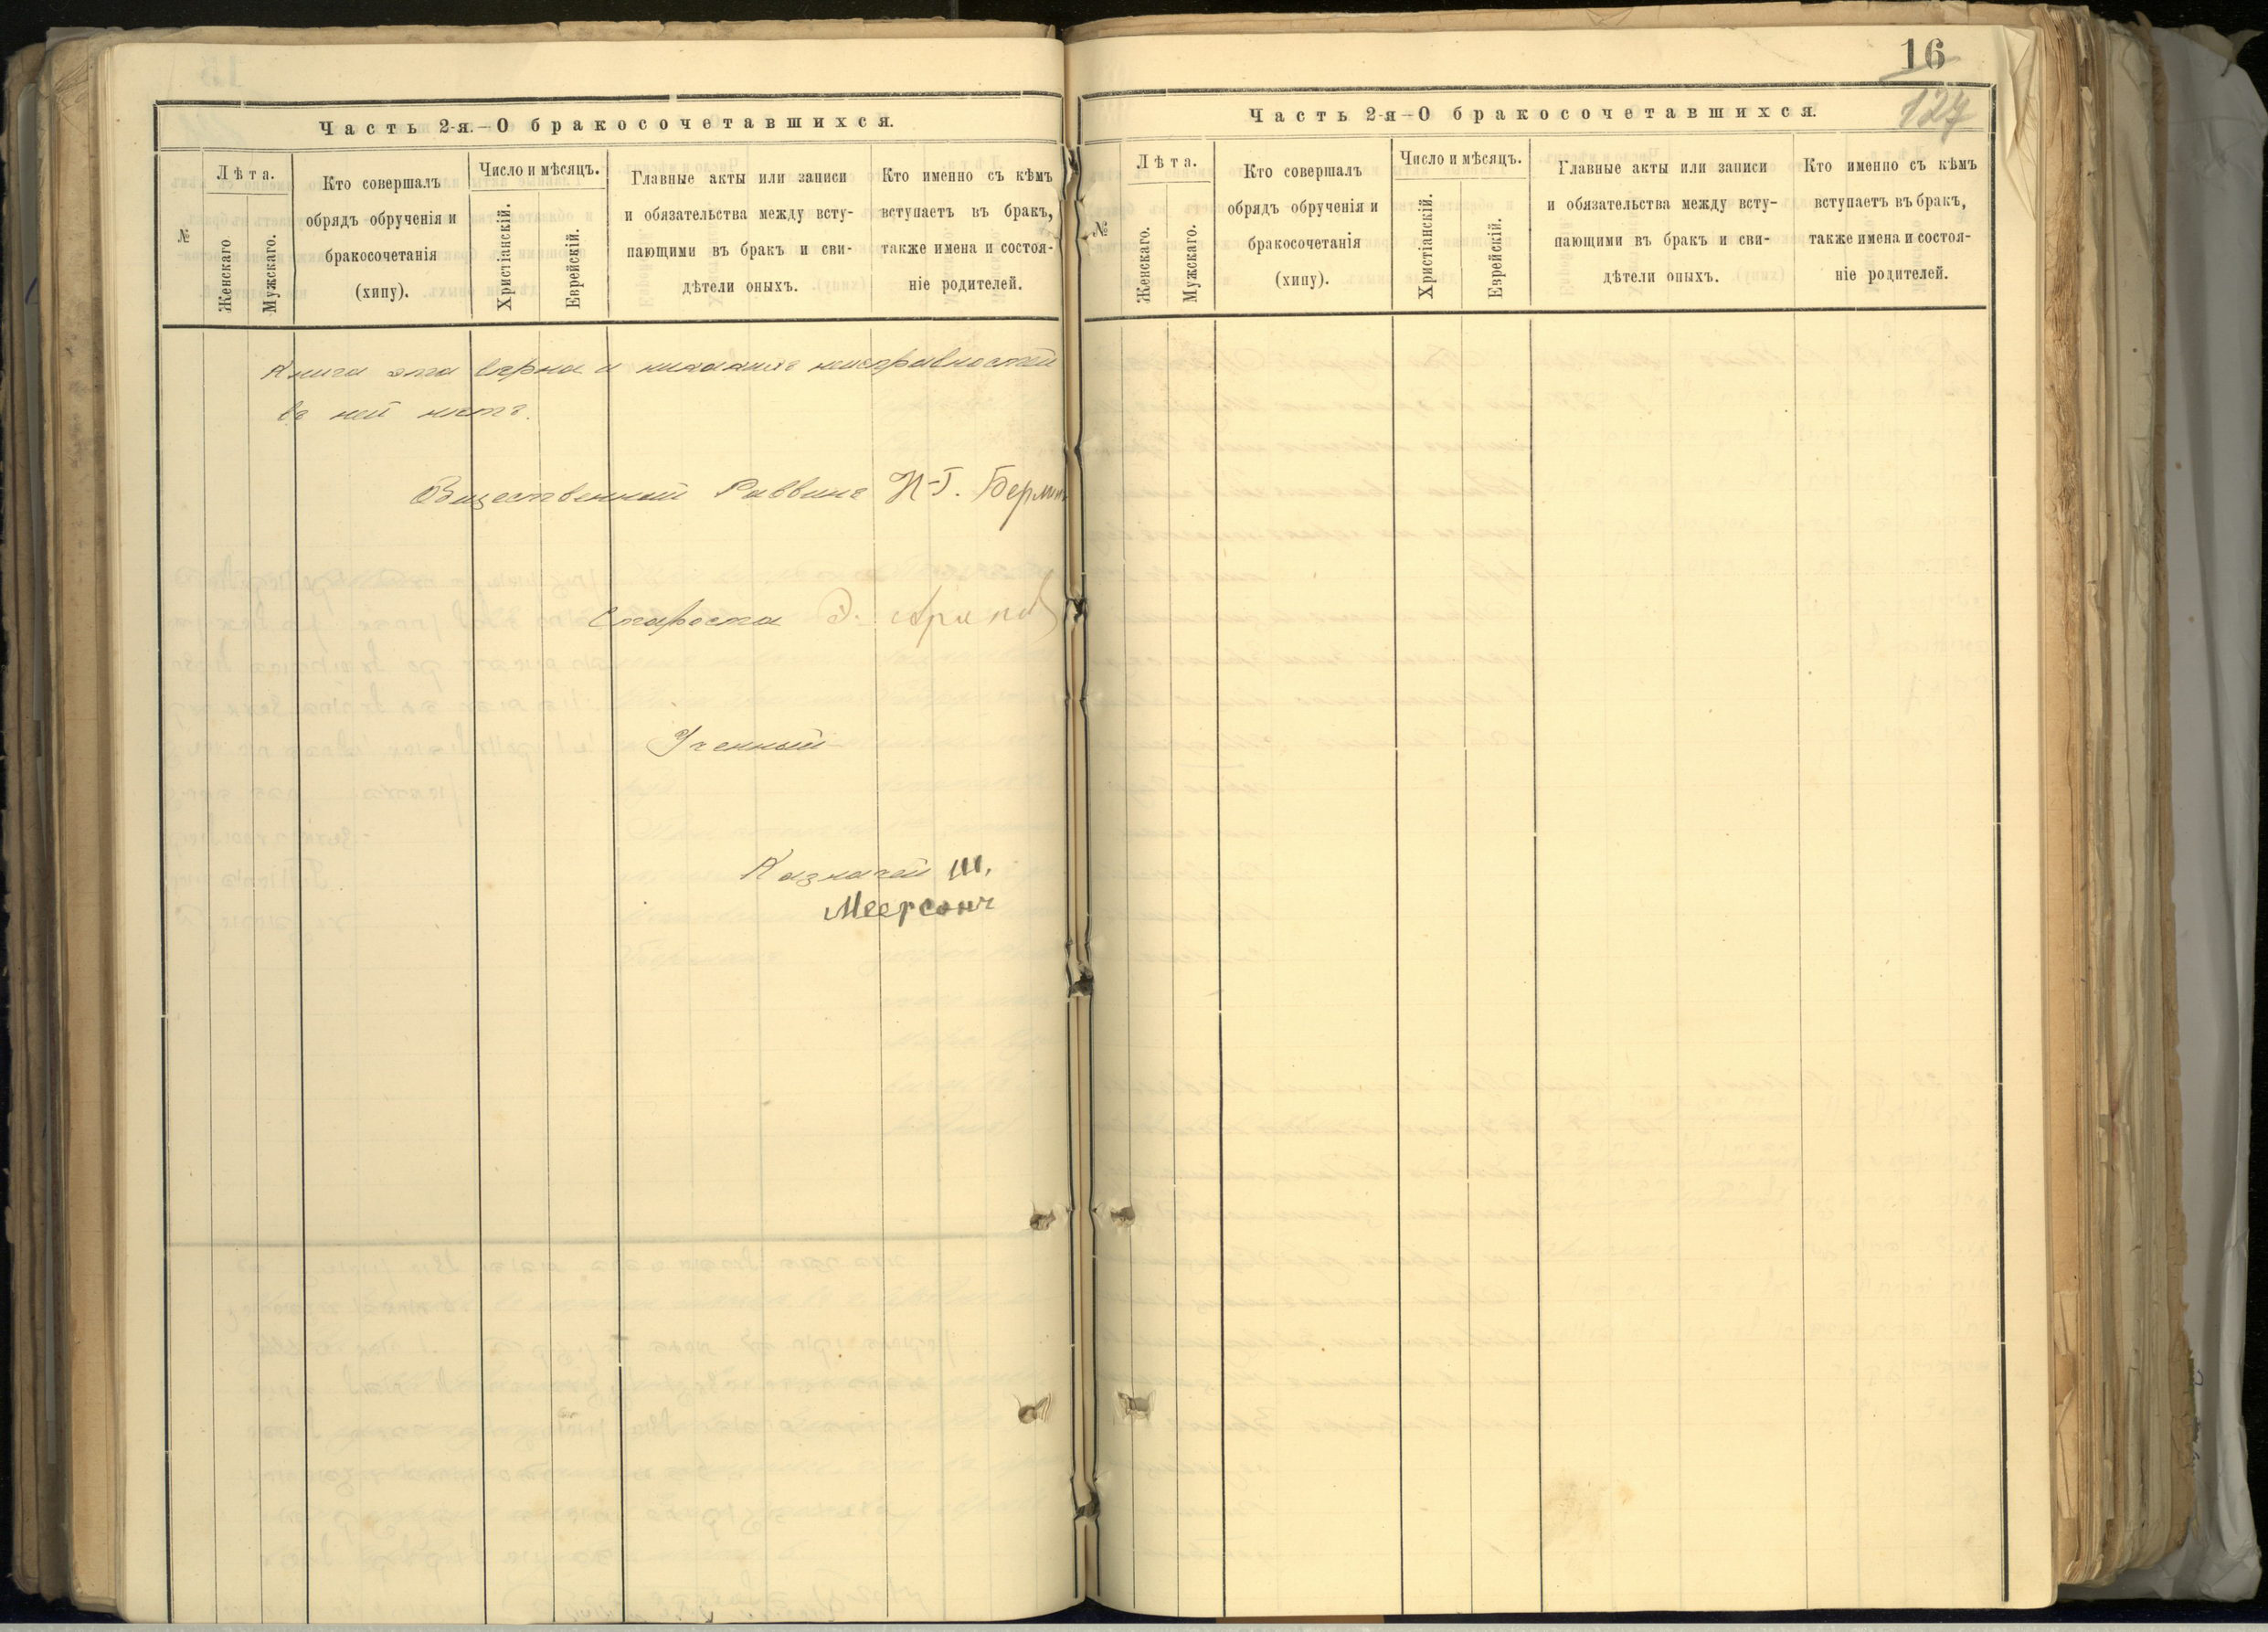 Часть 2-я.—О бракосочетавшихся.
№
Лѣта.
Женскаго
Мужскаго.
Кто совершалъ
обрядъ обрученія и
бракосочетанія
(хипу).
Число и мѣсяцъ.
Христіанскій.
Еврейскій.
Главные акты или записи
и обязательства между всту-
пающими въ бракъ и сви-
дѣтели оныхъ.
Кто именно съ кѣмъ
вступаетъ въ бракъ,
также имена и состоя-
ніе родителей.
Книга эта верна и никакихъ неисправностей
въ ней нетъ.
Общественный Раввинъ И-Г. Берлин
Староста Э.
Ученный
Казначей Ш.
Меерсонъ
16
127
Часть 2-я—О бракосочетавшихся.
№
Лѣта.
Женскаго.
Мужскаго.
Кто совершалъ
обрядъ обрученія и
бракосочетанія
(хипу).
Число и мѣсяцъ.
Христіанскій.
Еврейскій.
Главные акты или записи
и обязательства между всту-
пающими въ бракъ и сви-
дѣтели оныхъ.
Кто именно съ кѣмъ
вступаетъ въ бракъ,
также имена и состоя-
ніе родителей.